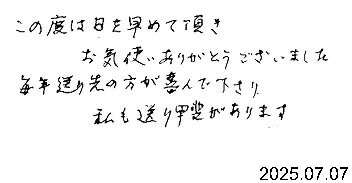 この度は日を早めて頂き
お気使いありがとうございました
毎年送り先の方が喜んで下さり
私も送り甲斐があります
2025.07.07